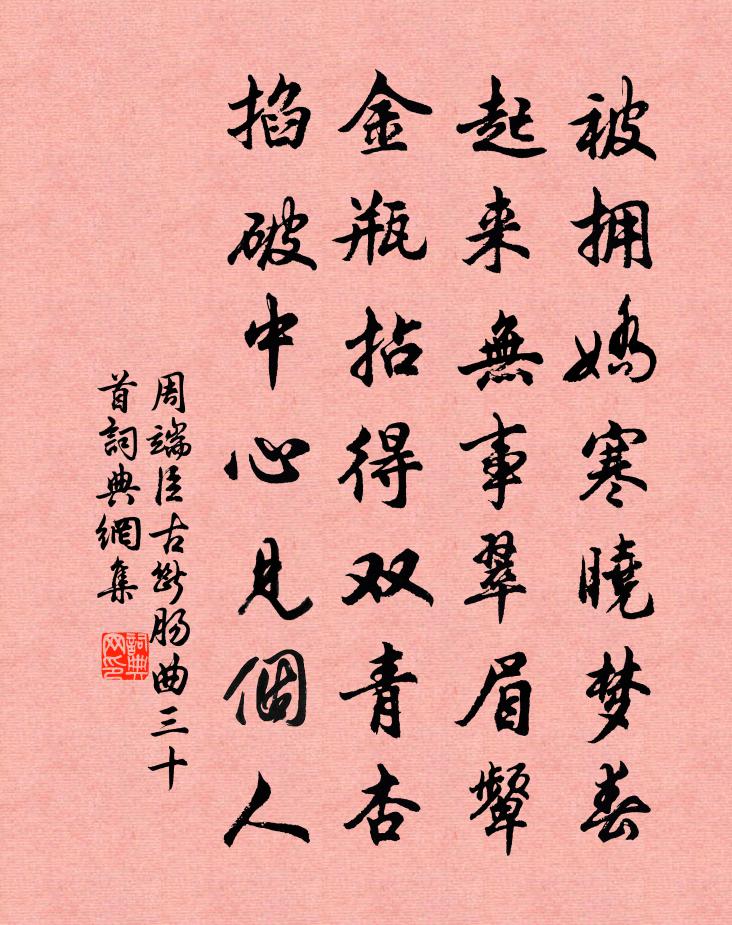 被拥娇寒曉梦春
起来無事翠眉颦
金瓶拈得双青杏
掐破中心見個人
周端臣古断肠曲三十
首詞典網集
詞典
网印